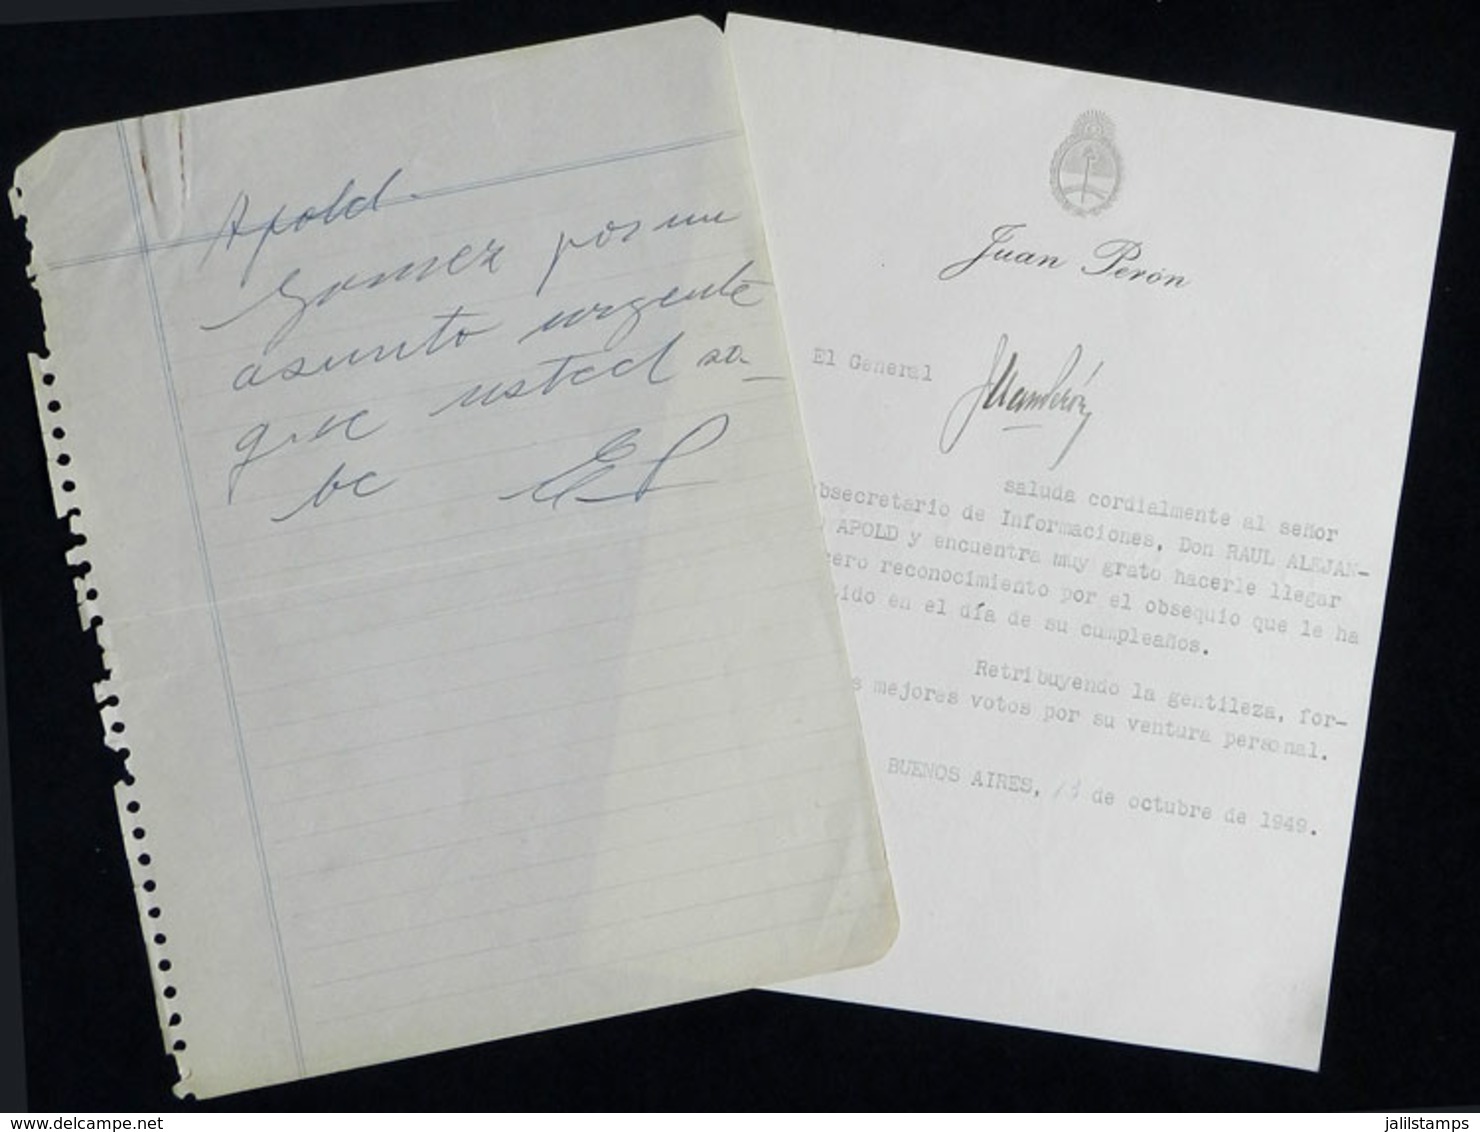 Apold.
Gomez por un
asunto urgente
que usted sa-
be EP
Juan Perón
El General Juan Perón
saluda cordialmente al señor
bsecretario de Informaciones, Don RAUL ALEJAN-
APOLD y encuentra muy grato hacerle llegar
cero reconocimiento por el obsequio que le ha
ido en el día de su cumpleaños.
Retribuyendo la gentileza, for-
s mejores votos por su ventura personal.
BUENOS AIRES, 13 de octubre de 1949.
delcampe.net
jalilstamps